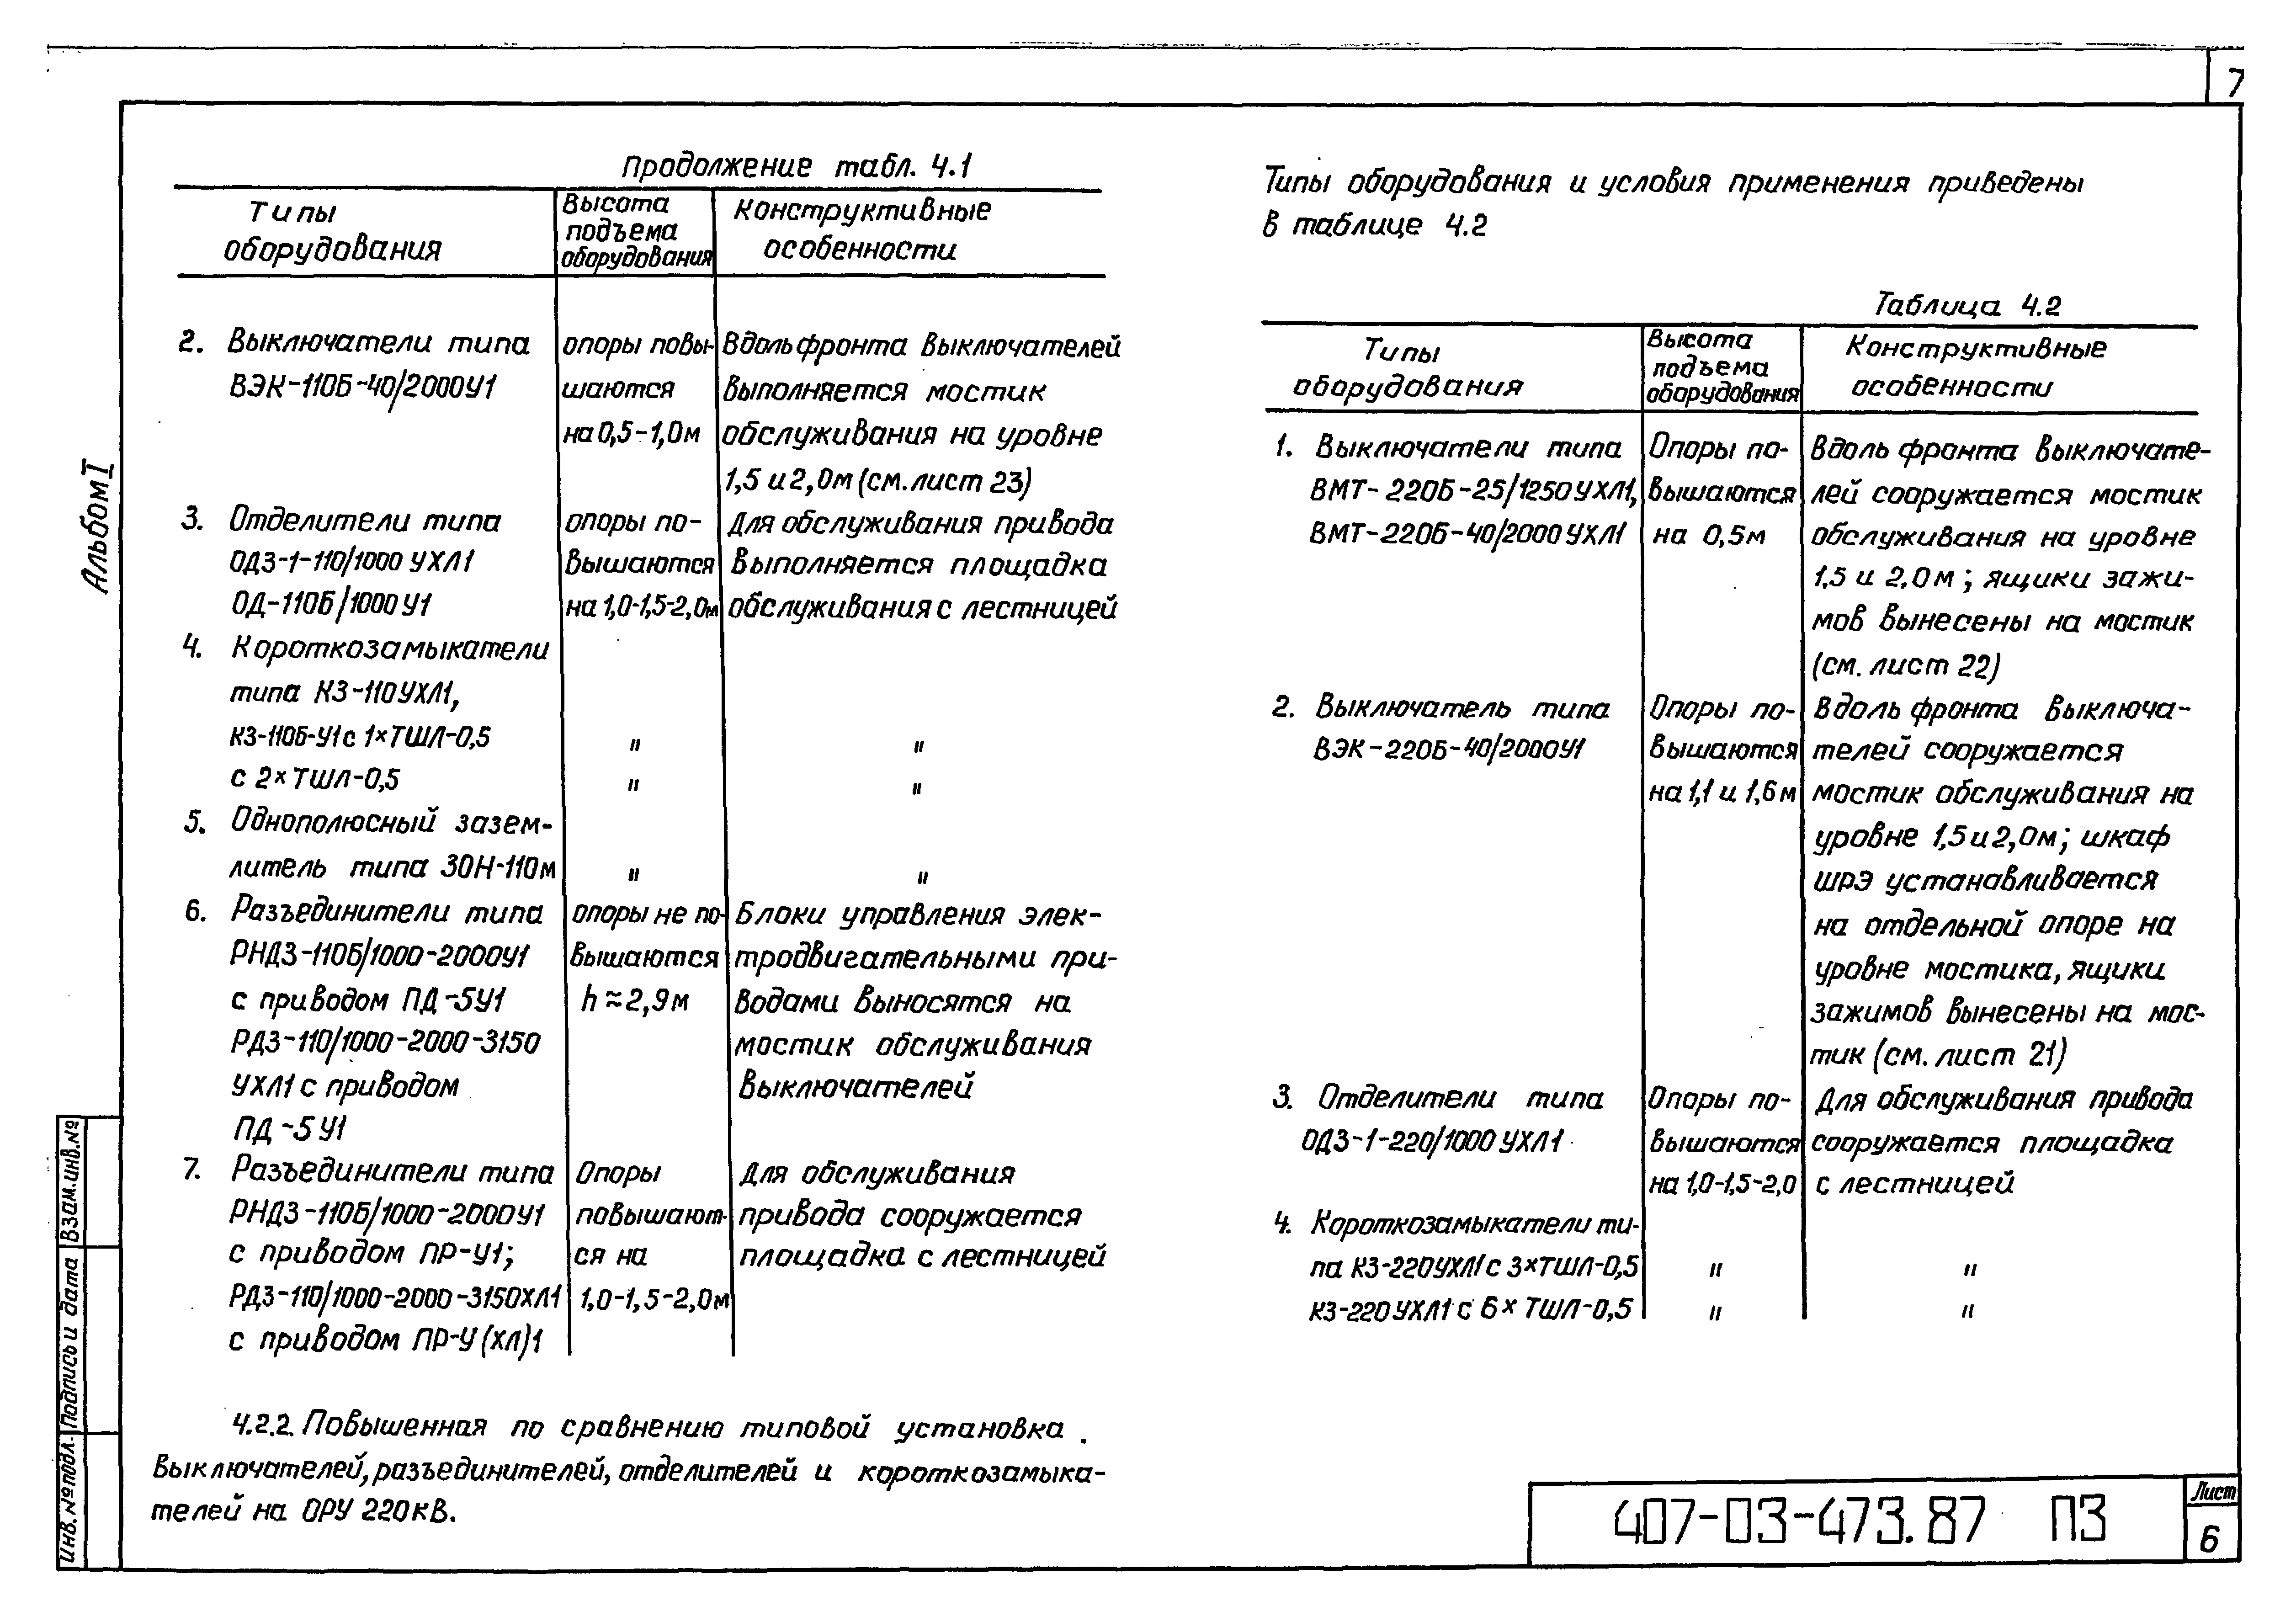 7
Продолжение табл. 4.1
Типы оборудования
Высота подъема оборудования
Конструктивные особенности
2. Выключатели типа
ВЭК-110Б-40/2000У1
опоры повы-
шаются
на 0,5-1,0м
Вдоль фронта выключателей
выполняется мостик
обслуживания на уровне
1,5 и 2,0м (см. лист 23)
3. Отделители типа
ОДЗ-1-110/1000 УХЛ1
ОД-110Б/1000У1
опоры по-
вышаются
на 1,0-1,5-2,0м
Для обслуживания привода
выполняется площадка
обслуживания с лестницей
4. Короткозамыкатели
типа КЗ-110УХЛ1,
КЗ-110Б-У1 с 1×ТШЛ-0,5
" "
с 2×ТШЛ-0,5
" "
5. Однополюсный зазем-
литель типа ЗОН-110м
" "
6. Разъединители типа
РНДЗ-110Б/1000-2000У1
с приводом ПД-5У1
РДЗ-110/1000-2000-3150
УХЛ1 с приводом
ПД-5У1
опоры не по-
вышаются
h≈2,9м
Блоки управления элек-
тродвигательными при-
водами выносятся на
мостик обслуживания
выключателей
7. Разъединители типа
РНДЗ-110Б/1000-2000У1
с приводом ПР-У1;
РДЗ-110/1000-2000-3150ХЛ1
с приводом ПР-У(ХЛ)1
Опоры
повышают-
ся на
1,0-1,5-2,0м
Для обслуживания
привода сооружается
площадка с лестницей
4.2.2. Повышенная по сравнению типовой установка
выключателей, разъединителей, отделителей и короткозамыка-
телей на ОРУ 220кВ.
Типы оборудования и условия применения приведены
в таблице 4.2
Таблица 4.2
Типы оборудования
Высота подъема оборудования
Конструктивные особенности
1. Выключатели типа
ВМТ-220Б-25/1250УХЛ1,
ВМТ-220Б-40/2000УХЛ1
Опоры по-
вышаются
на 0,5м
Вдоль фронта выключате-
лей сооружается мостик
обслуживания на уровне
1,5 и 2,0м; ящики зажи-
мов вынесены на мостик
(см. лист 22)
2. Выключатель типа
ВЭК-220Б-40/2000У1
Опоры по-
вышаются
на 1,1 и 1,6м
Вдоль фронта выключа-
телей сооружается
мостик обслуживания на
уровне 1,5 и 2,0м; шкаф
ШРЭ устанавливается
на отдельной опоре на
уровне мостика, ящики
зажимов вынесены на мос-
тик (см. лист 21)
3. Отделители типа
ОДЗ-1-220/1000УХЛ1
Опоры по-
вышаются
на 1,0-1,5-2,0
Для обслуживания привода
сооружается площадка
с лестницей
4. Короткозамыкатели ти-
па КЗ-220УХЛ1 с 3×ТШЛ-0,5
" "
КЗ-220УХЛ1 с 6×ТШЛ-0,5
" "
Альбом I
Инв.№подл.
Подпись и дата
Взам.инв.№
407-03-473.87 ПЗ
Лист
6